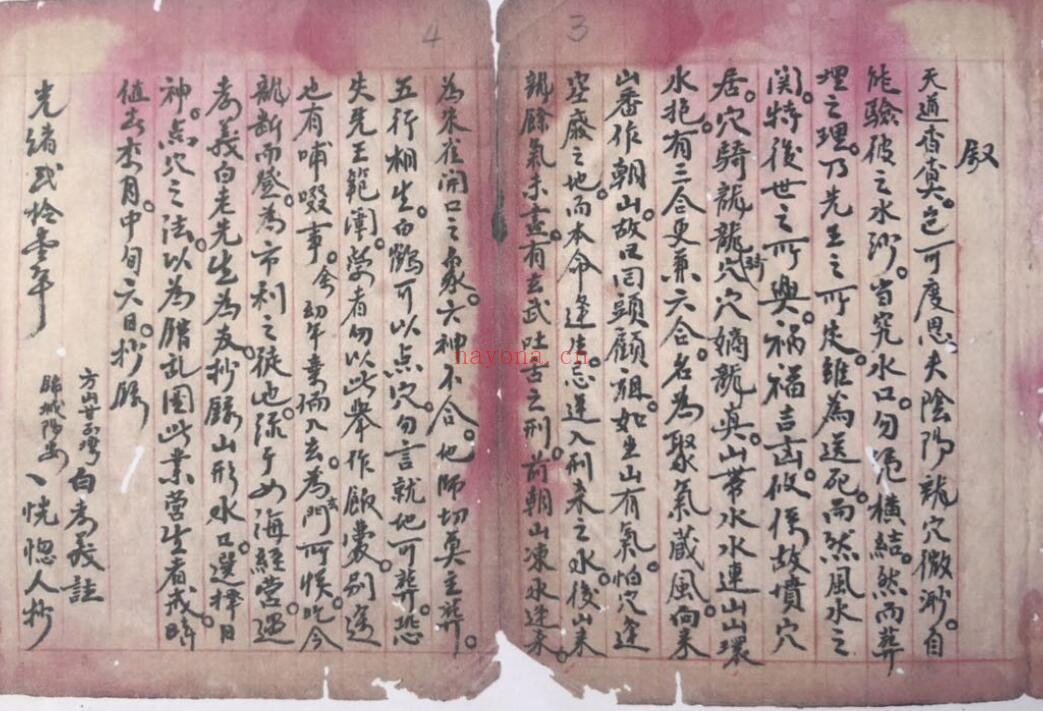 3
殿
天道杳冥。邑可度思夫陰陽龍穴微渺。自
能驗彼之水沙。当究水口勿危橫結。然而葬
埋之理。乃先王之所定。雖為送死。而然風水之
関。特後世之所興。禍福吉凶攸係故墳穴
居。穴騎龍龍騎穴穴嫡龍真。山帶水水連山山環
水抱有三合更兼六合名為聚氣藏風向来
山番作朝山。故曰囬頭顧祖。如坐山有氣。怕穴逢
空廢之地。而本命逢生。忌逆入刑来之水。後山来
龍餘氣未盡。有玄武吐舌之刑。前朝山凍水逆来。
4
為朱雀開口之象。六神不合。他師切莫主葬。
五行相生。白鶴可以点穴。勿言就地可葬。恐
失先王範圍。勞者勿以此举作飯囊。别途
也有哺啜事。幼年棄儒入去。為門所悞。吃今
龍断而登。為市利之徒也。流于海經營。遇
孝義白老先生為友。抄錄山形水口。選擇日
神。点穴之法。以為腊乱圖此業营生者戒。時
值去李月。中旬六日。抄錄
光緒弍拾壹年
方山
白孝義註
歸城陽
恍惚人抄
nayona.cn